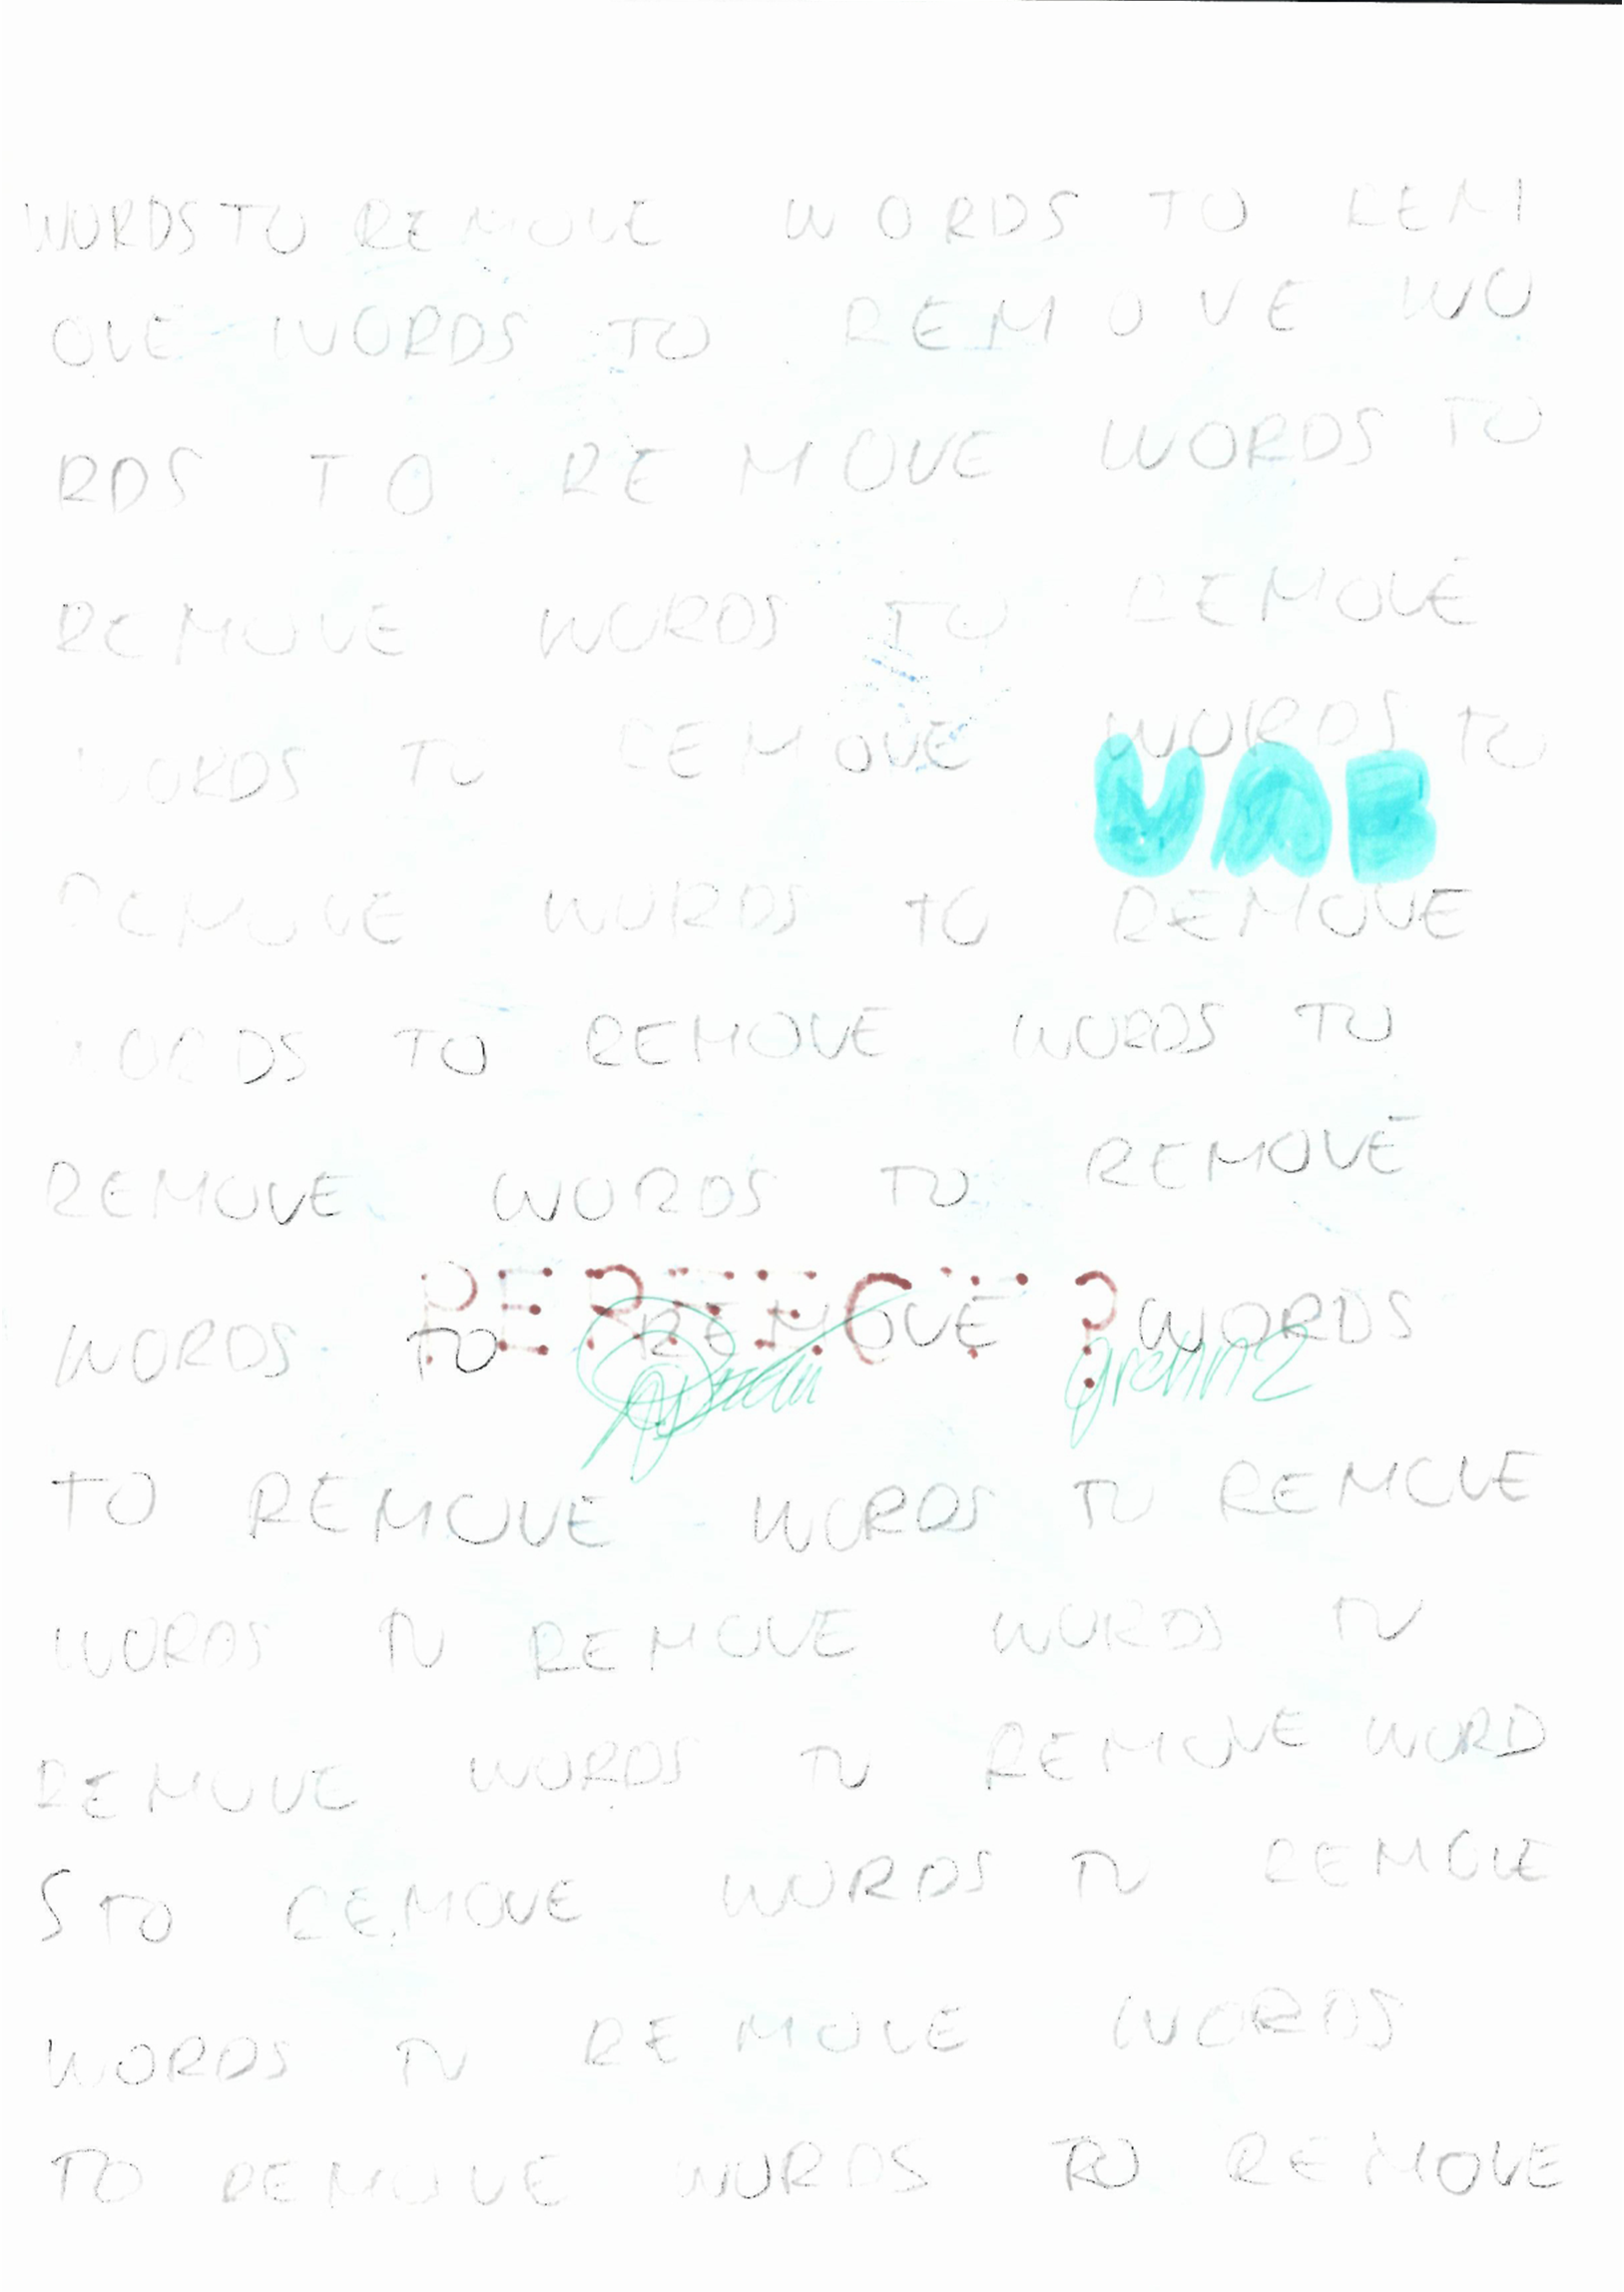 WORDS TO REMOVE WORDS TO REM
OVE WORDS TO REMOVE WO
RDS TO REMOVE WORDS TO
REMOVE WORDS TO REMOVE
WORDS TO REMOVE WORDS TO
UAB
REMOVE WORDS TO REMOVE
WORDS TO REMOVE WORDS TO
REMOVE WORDS TO REMOVE
PERFECT?
WORDS TO REMOVE WORDS
TO REMOVE WORDS TO REMOVE
WORDS TO REMOVE WORDS TO
REMOVE WORDS TO REMOVE WORD
S TO REMOVE WORDS TO REMOVE
WORDS TO REMOVE WORDS
TO REMOVE WORDS TO REMOVE